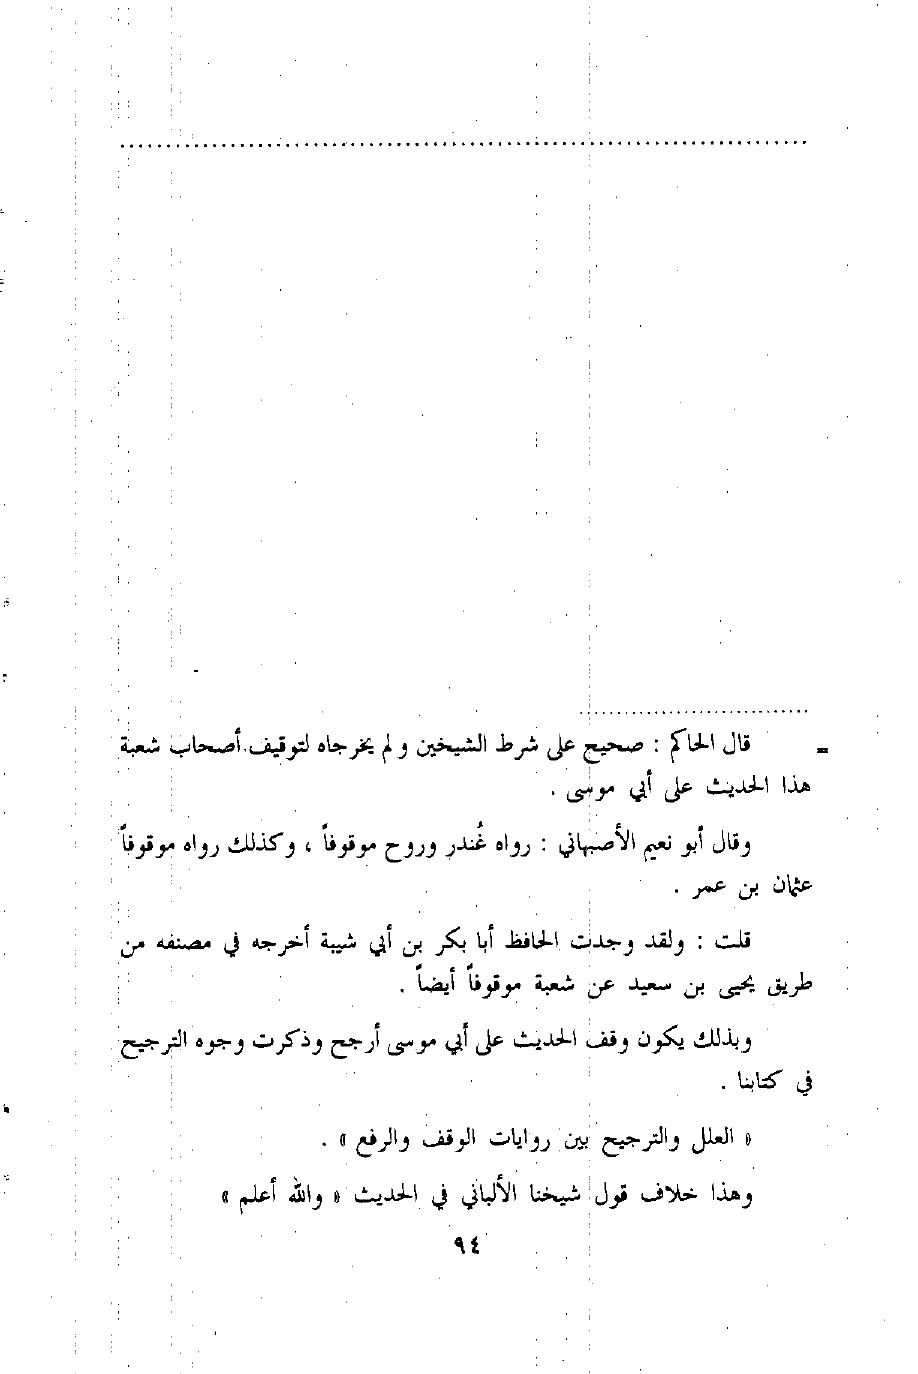 = قال الحاكم : صحيح على شرط الشيخين ولم يخرجاه لتوقيف أصحاب شعبة
هذا الحديث على أبي موسى .
وقال أبو نعيم الأصبهاني : رواه غُندر وروح موقوفاً ، وكذلك رواه موقوفاً
عثمان بن عمر .
قلت : ولقد وجدت الحافظ أبا بكر بن أبي شيبة أخرجه في مصنفه من
طريق يحيى بن سعيد عن شعبة موقوفاً أيضاً .
وبذلك يكون وقف الحديث على أبي موسى أرجح وذكرت وجوه الترجيح
في كتابنا .
« العلل والترجيح بين روايات الوقف والرفع » .
وهذا خلاف قول شيخنا الألباني في الحديث « والله أعلم »
٩٤